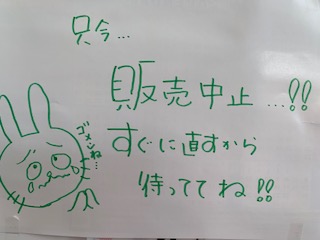 只今...
販売中止...!!
すぐに直すから
待っててね!!
ゴメンね...